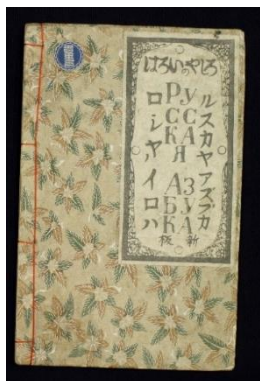 ろしやのいろは
ルスカヤアズブカ
РУ
СС
КА
Я
АЗ
БУ
КА
ロシヤノイロハ